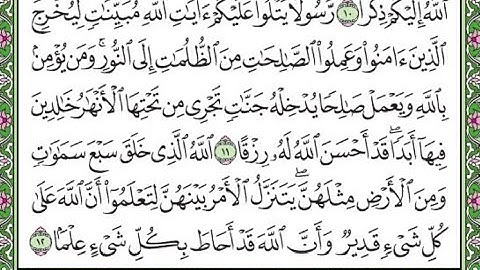 ٱللَّهُ إِلَيْكُمْ ذِكْرًا ١٠ رَّسُولًا يَتْلُوا۟ عَلَيْكُمْ ءَايَٰتِ ٱللَّهِ مُبَيِّنَٰتٍ لِّيُخْرِجَ
ٱلَّذِينَ ءَامَنُوا۟ وَعَمِلُوا۟ ٱلصَّٰلِحَٰتِ مِنَ ٱلظُّلُمَٰتِ إِلَى ٱلنُّورِ ۚ وَمَن يُؤْمِنۢ
بِٱللَّهِ وَيَعْمَلْ صَٰلِحًا يُدْخِلْهُ جَنَّٰتٍ تَجْرِى مِن تَحْتِهَا ٱلْأَنْهَٰرُ خَٰلِدِينَ
فِيهَآ أَبَدًا ۖ قَدْ أَحْسَنَ ٱللَّهُ لَهُۥ رِزْقًا ١١ ٱللَّهُ ٱلَّذِى خَلَقَ سَبْعَ سَمَٰوَٰتٍ
وَمِنَ ٱلْأَرْضِ مِثْلَهُنَّ ۖ يَتَنَزَّلُ ٱلْأَمْرُ بَيْنَهُنَّ لِتَعْلَمُوٓا۟ أَنَّ ٱللَّهَ عَلَىٰ
كُلِّ شَىْءٍ قَدِيرٌ وَأَنَّ ٱللَّهَ قَدْ أَحَاطَ بِكُلِّ شَىْءٍ عِلْمًۢا ١٢